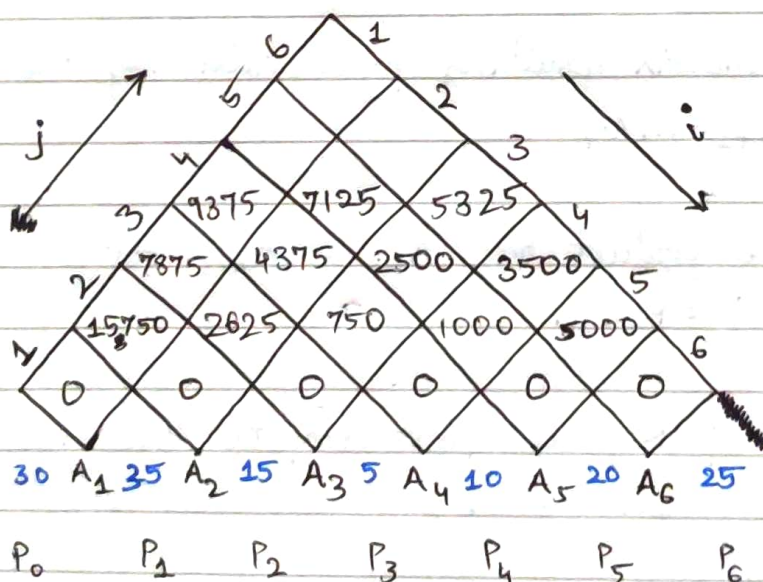 6 1
5 2
j i
4 3
3 9375 7125 5325 4
2 7875 4375 2500 3500 5
1 15750 2625 750 1000 5000 6
0 0 0 0 0 0
30 A1 35 A2 15 A3 5 A4 10 A5 20 A6 25
P0 P1 P2 P3 P4 P5 P6